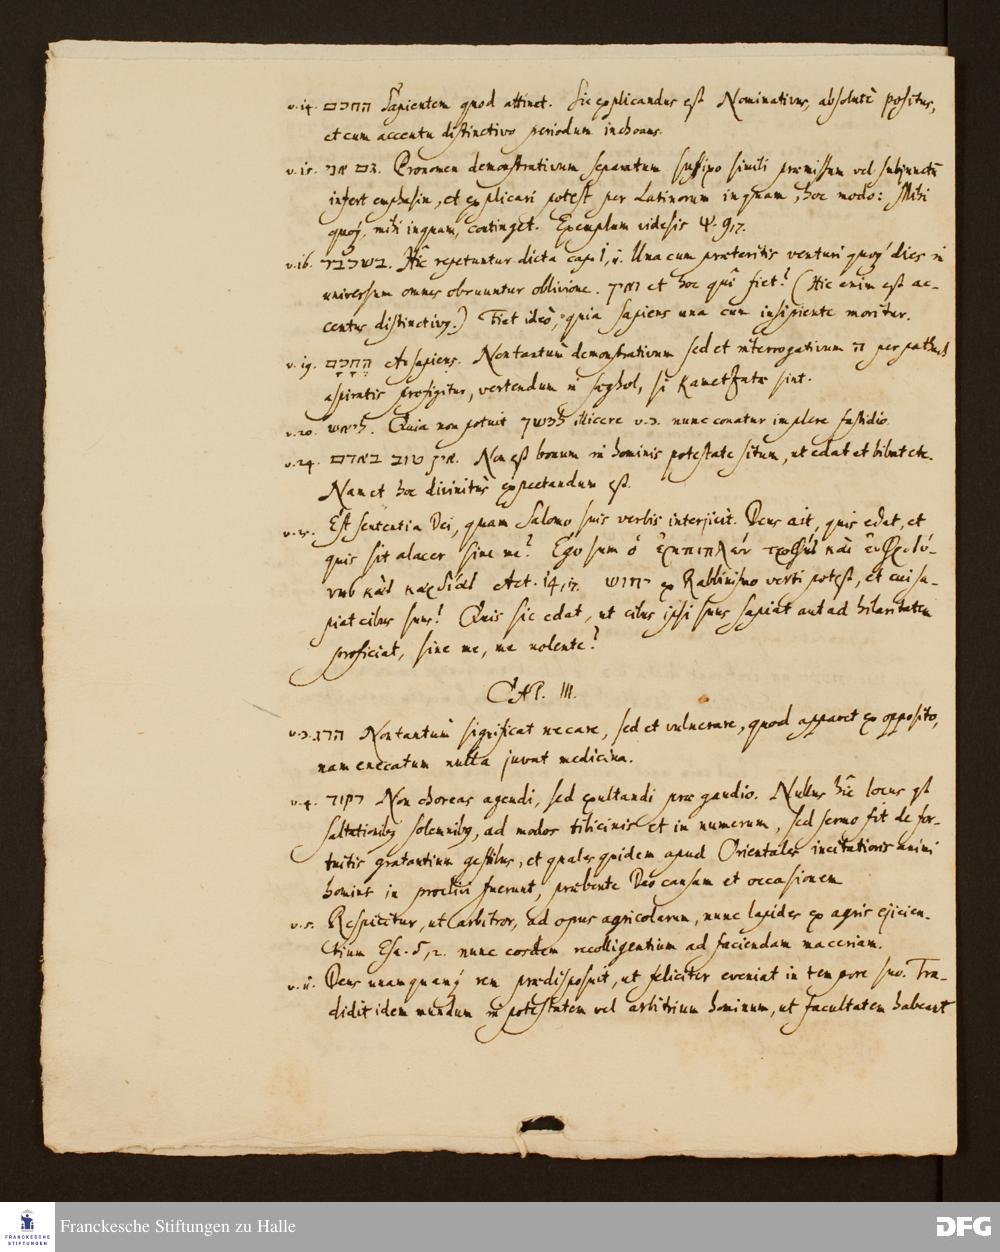 v. 14. החכם Sapientem quod attinet. Sic explicandus est Nominativus, absolutè positus,
et cum accentu distinctivo periodum inchoans.
v. 15. גם אני. Pronomen demonstrativum separatum suffixo simili præmissum vel subjunctũ
infert emphasin, et explicari potest per Latinorum inquam, hoc modo: Mihi
quoq, mihi inquam, continget. Exemplum videsis Ψ. 9,7.
v. 16. בשכבר. Hîc repetuntur dicta cap. 1, 11. Una cum præteritis venturi quoq dies in
universum omnes obruuntur oblivione. ואיך et hoc quî fiet? (Hic enim est ac-
centus distinctivq.) Fiet ideò, quia sapiens una cum insipiente moritur.
v. 19. הֶחָכָם An sapiens. Non tantùm demonstrativum sed et interrogativum ה per pathach
aspiratis præfigitur, vertendum in seghol, si Kametzatæ sint.
v. 20. ליאש. Quia non potuit למשך illicere v. 3. nunc conatur implere fastidio.
v. 24. אין טוב באדם. Non est bonum in hominis potestate situm, ut edat et bibat etc.
Nam et hoc divinitùs expectandum est.
v. 25. Est sententia Dei, quam Salomo suis verbis interjicit. Deus ait, quis edat, et
quis sit alacer sine me? Ego sum ὁ ἐμπιπλῶν τροφῆς καὶ εὐφροσύ-
νης τὰς καρδίας Act. 14,17. יחוש ex Rabbinismo verti potest, et cui sa-
piat cibus suus! Quis sic edat, ut cibus ipsi suus sapiat aut ad hilaritatem
proficiat, sine me, me nolente?
CAP. III.
v. 3. הרג Non tantùm significat necare, sed et vulnerare, quod apparet ex opposito,
nam enecatum nulla juvat medicina.
v. 4. רקוד Non choreas agendi, sed exultandi præ gaudio. Nullus hîc locus est
saltationibq solennibq, ad modos tibicinis et in numerum, sed sermo fit de for-
tuitis gratantium gestibus, et quales quidem apud Orientales incitatioris animi
homines in proclivi fuerunt, præbente Deo causam et occasionem
v. 5. Respicitur, ut arbitror, ad opus agricolarum, nunc lapides ex agris ejicien-
tium Esa. 5, 2. nunc eosdem recolligentium ad faciendam maceriam.
v. 11. Deus unamquamq rem prædisposuit, ut feliciter eveniat in tempore suo. Tra-
didit idem mundum in potestatem vel arbitrium hominum, ut facultatem habeant
FRANCKESCHE
STIFTUNGEN
Franckesche Stiftungen zu Halle
DFG